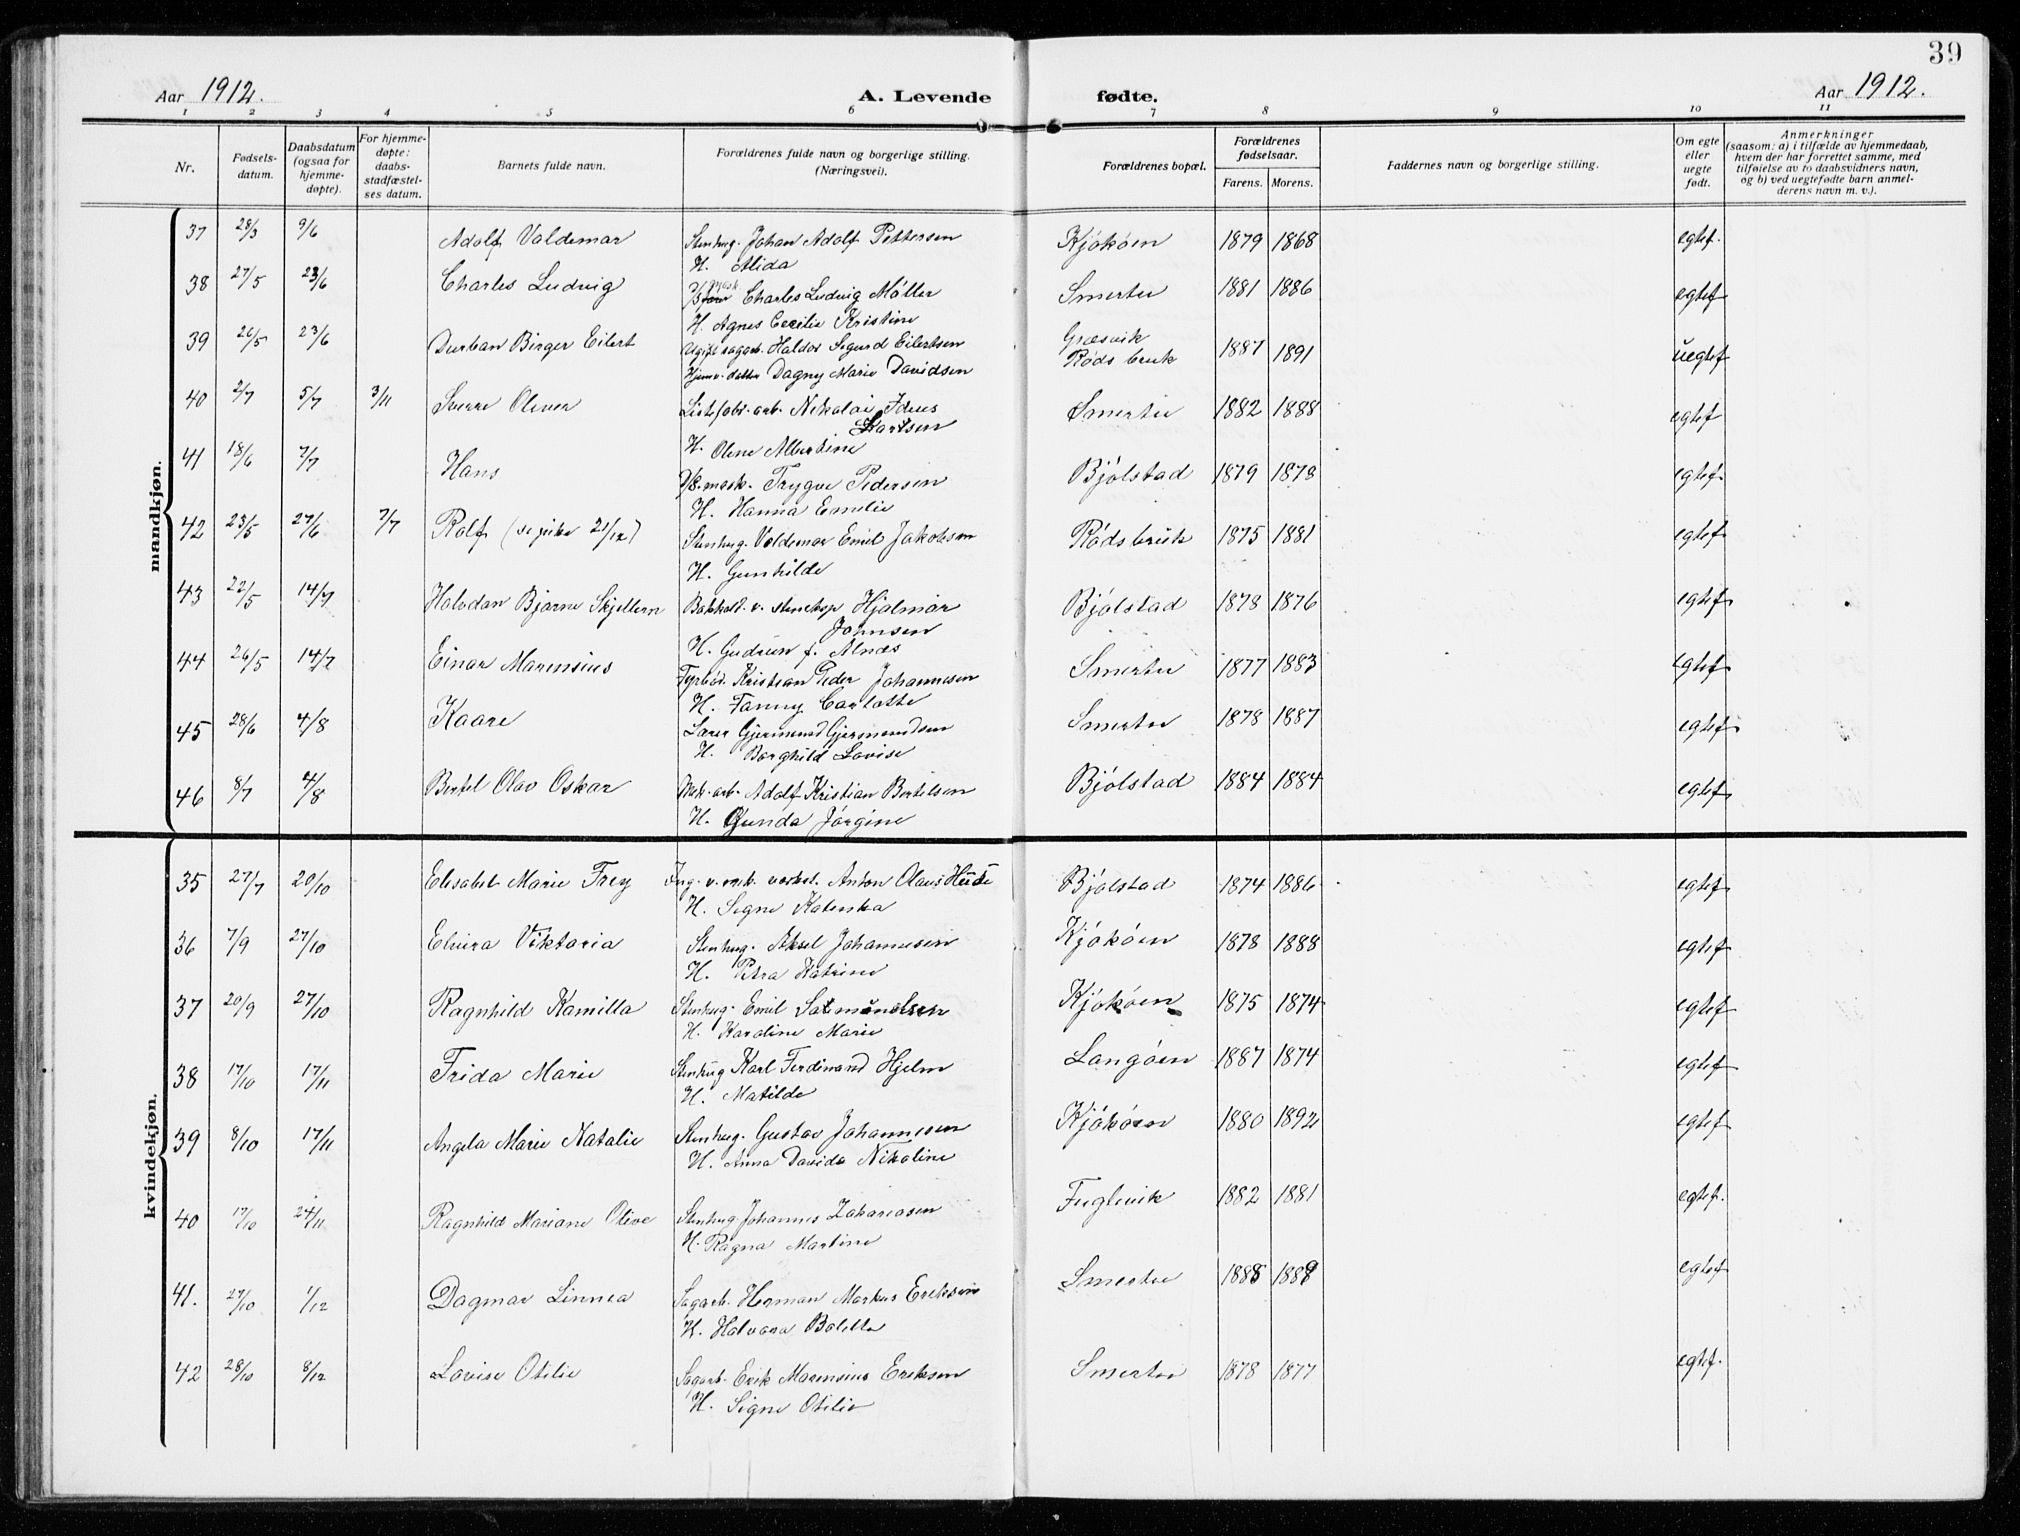 39
Aar 1912. A. Levende fødte. Aar 1912.
1 2 3 4 5 6 7 8 9 10 11
Nr. Fødselsdatum. Daabsdatum (ogsaa for hjemmedøpte). For hjemmedøpte: daabsstadfæstelses datum. Barnets fulde navn. Forældrenes fulde navn og borgerlige stilling. (Næringsvei). Forældrenes bopæl. Forældrenes fødselsaar. Farens. Morens. Faddernes navn og borgerlige stilling. Om egte eller uegte født. Anmerkninger (saasom: a) i tilfælde av hjemmedaab, hvem der har forrettet samme, med tilføielse av to daabsvidners navn, og b) ved uegtefødte barn anmelderens navn m. v.).
mandkjøn.
37 28/3 9/6 Adolf Valdemar Stenhug. Johan Adolf Pettersen Kjökøen 1879 1868 egtef.
H. Alida
38 27/5 23/6 Charles Ludvig Charles Ludvig Møller Smertu 1881 1886 egtef
H. Agnes Cecilie Kristine
39 26/5 23/6 Durban Birger Eilert Ugift sagarb. Haldor Sigurd Eilertsen Græsvik Röds bruk 1887 1891 uegtef
Hjemv. datter Dagny Marie Davidsen
40 2/7 5/7 3/11 Sverre Oliver Listefabr. arb. Nikolai Larsen Smertu 1882 1888 egtef
H. Oline Albertine
41 18/6 7/7 Hans D/S. mask. Trygve Pedersen Bjölstad 1879 1878 egtef.
H. Hanna Emelie
42 23/5 27/6 7/7 Rolf Stenhug. Valdemar Emil Jakobsen Rödsbruk 1875 1881 egtef
H. Gunhilde
43 22/5 14/7 Halvdan Bjarne Skjellern Hjalmar Johnsen Bjölstad 1878 1876 egtef
H. Gudrun f. Alnæs
44 26/5 14/7 Einar Marensius Fyrbød. Kristian Peder Johannesen Smertu 1877 1883 egtef
H. Fanny Carlotte
45 28/6 4/8 Kaare Lærer Gjermund Gjermundsen Smertu 1878 1887 egtef
H. Borghild Lovise
46 8/7 4/8 Bertel Olav Oskar Mek. arb. Adolf Kristian Bertelsen Bjölstad 1884 1884 egtef
H. Gunda Jörgine
kvindekjøn.
35 27/7 20/10 Elisabet Marie Frey Ing. v. mek. verkst. Anton Olaus Bjölstad 1874 1886 egtef
H. Signe Katinka
36 7/9 27/10 Elvira Viktoria Stenhug. Aksel Johannesen Kjökøen 1878 1888 egtef
H. Petra Katrine
37 20/9 27/10 Ragnhild Kamilla Stenhug. Emil Kjökøen 1875 1874 egtef
H. Karoline Marie
38 17/10 17/11 Frida Marie Stenhug Karl Ferdinand Hjelm Langøen 1887 1874 egtef
H. Matilde
39 8/10 17/11 Angela Marie Natalie Stenhug. Gustav Johannesen Kjökøen 1880 1892 egtef
H. Anna Davida Nikoline
40 17/10 24/11 Ragnhild Mariane Olive Stenhug. Johannes Zakariasen Fuglevik 1882 1881 egtef.
H. Ragna Martine
41. 27/10 1/12 Dagmar Linnea Sagarb. Herman Markus Eriksen Smertu 1888 1889 egtef
H. Halvara Boletta
42 28/10 8/12 Lovise Otilie Sagarb. Erik Marensius Eriksen Smertu 1878 1877 egtef.
H. Signe Otilie